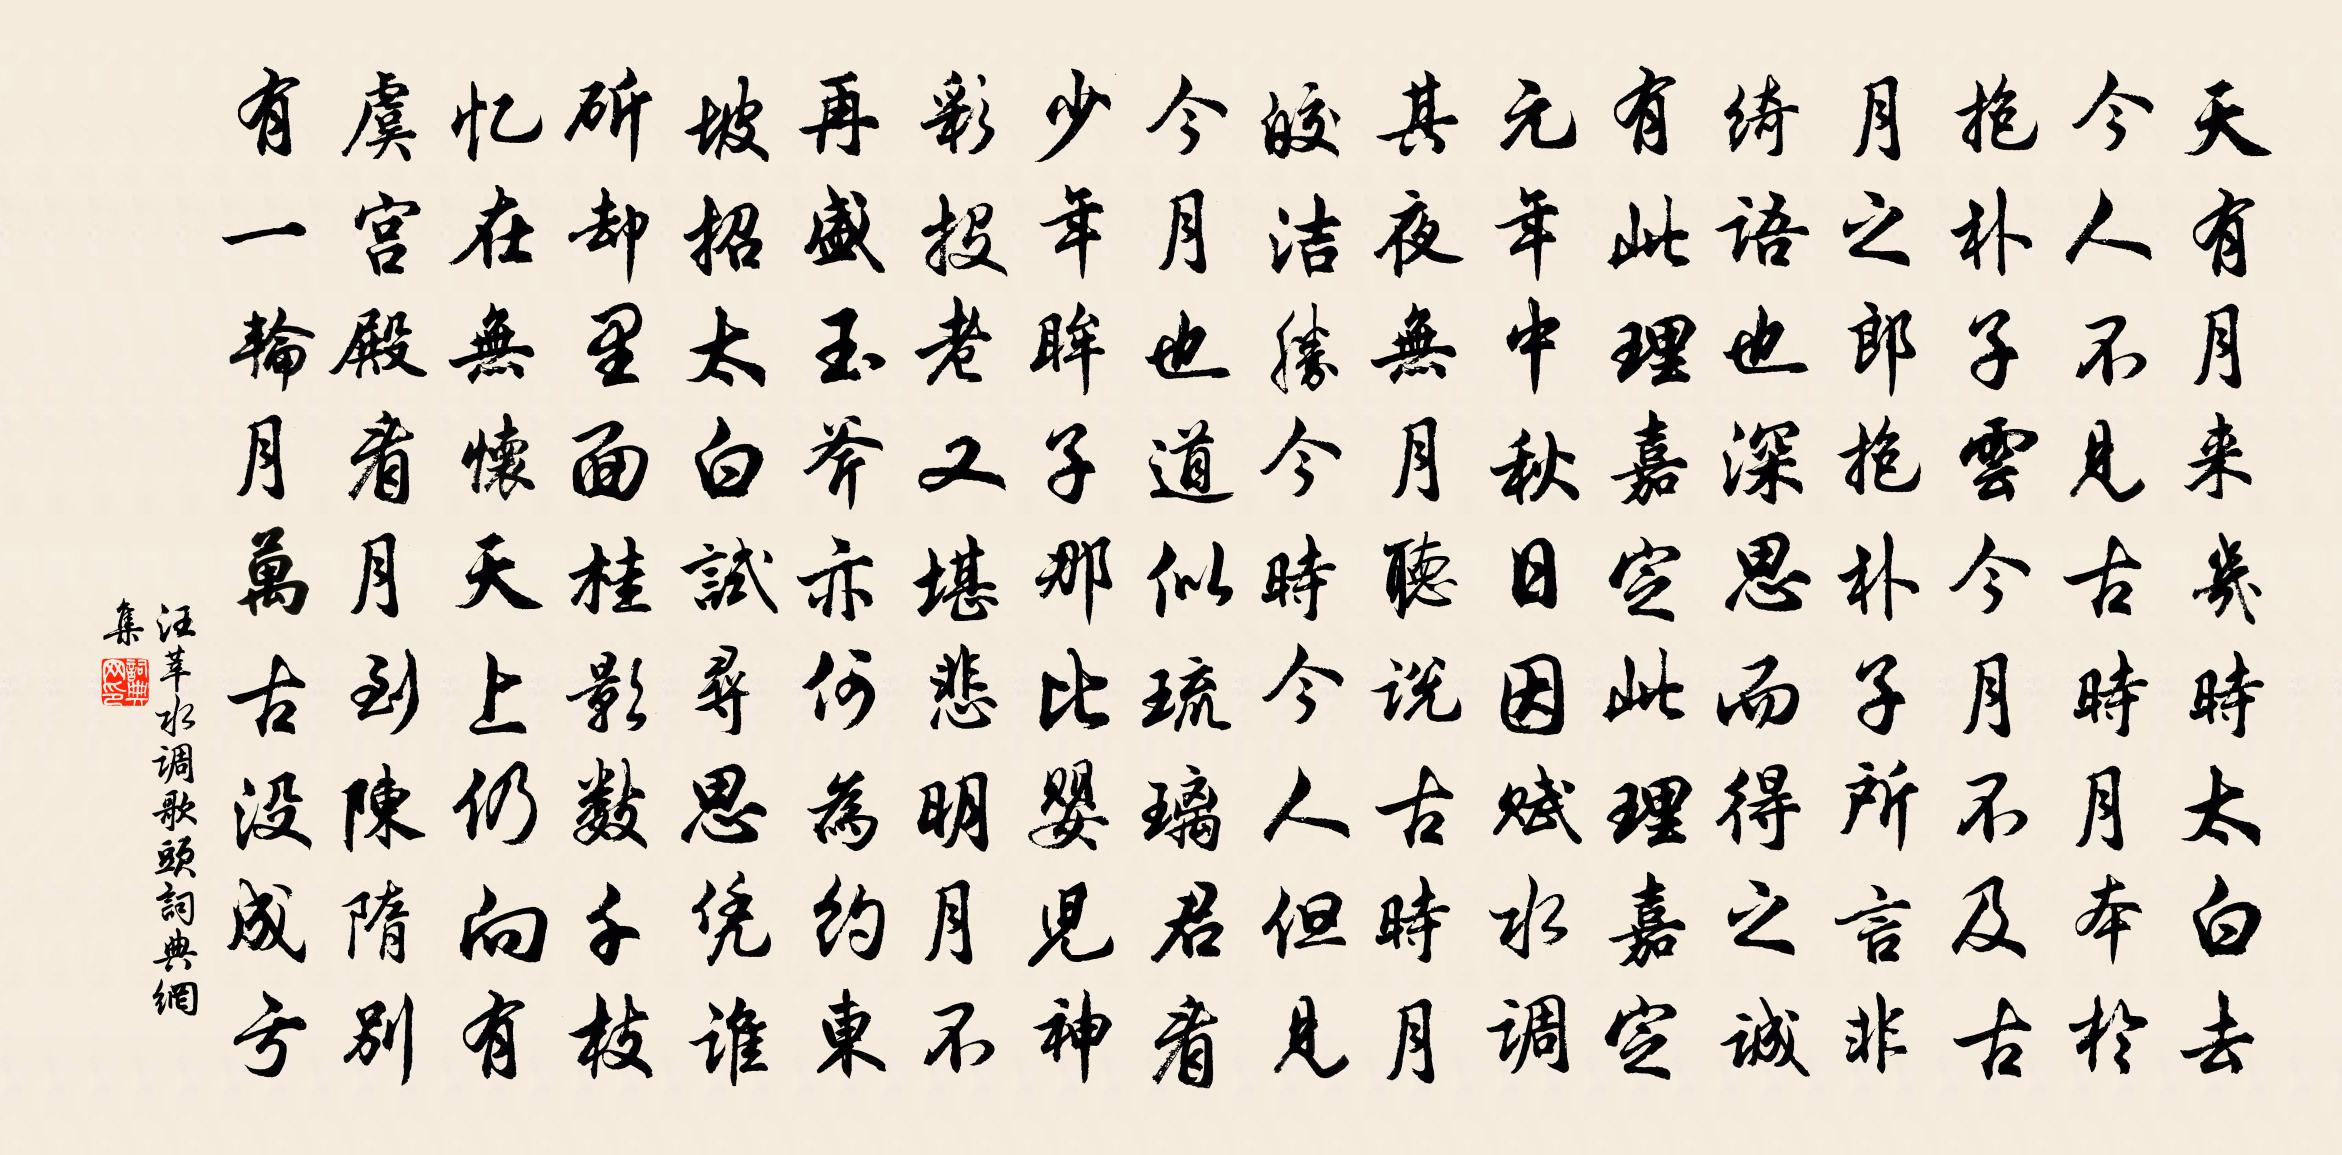 天有月来幾時太白去
今人不見古時月本於
抱朴子雲今月不及古
月之郎抱朴子所言非
绮語也深思而得之誠
有此理嘉定此理嘉定
元年中秋日因赋水调
其夜無月聽说古時月
皎洁勝今時今人但見
今月也道似琉璃君看
少年眸子那比婴児神
彩投老又堪悲明月不
再盛玉斧亦何為約東
坡招太白試尋思凭谁
斫却里面桂影数千枝
忆在無懷天上仍向有
虞宫殿看月到陳隋别
有一輪月萬古没成亏
汪莘水调歌頭詞典網
集
詞典网印